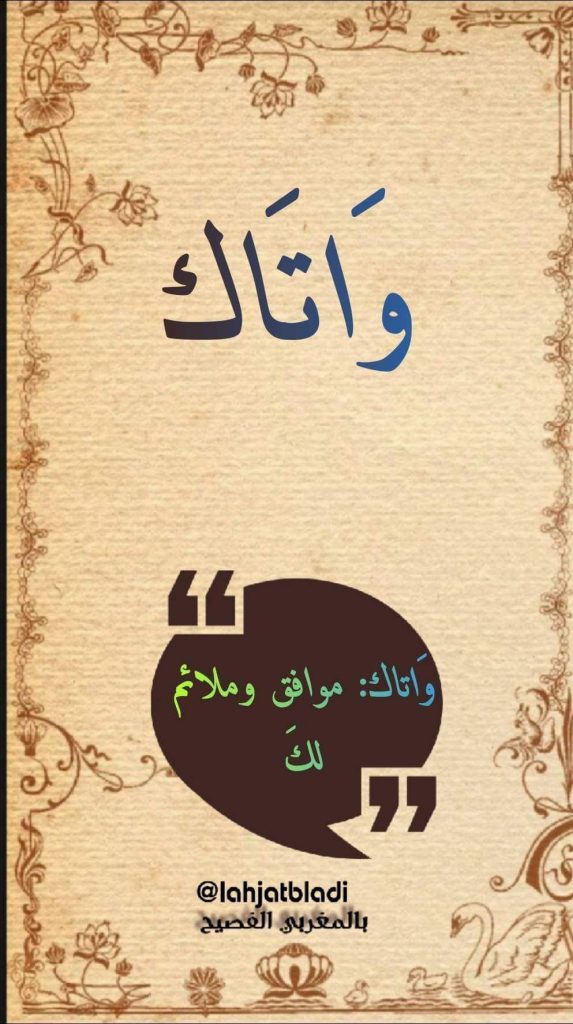 وَاتَاك
وَاتاك: موافق وملائم
لكَ
@lahjatbladi
بالمغربي الفصيح